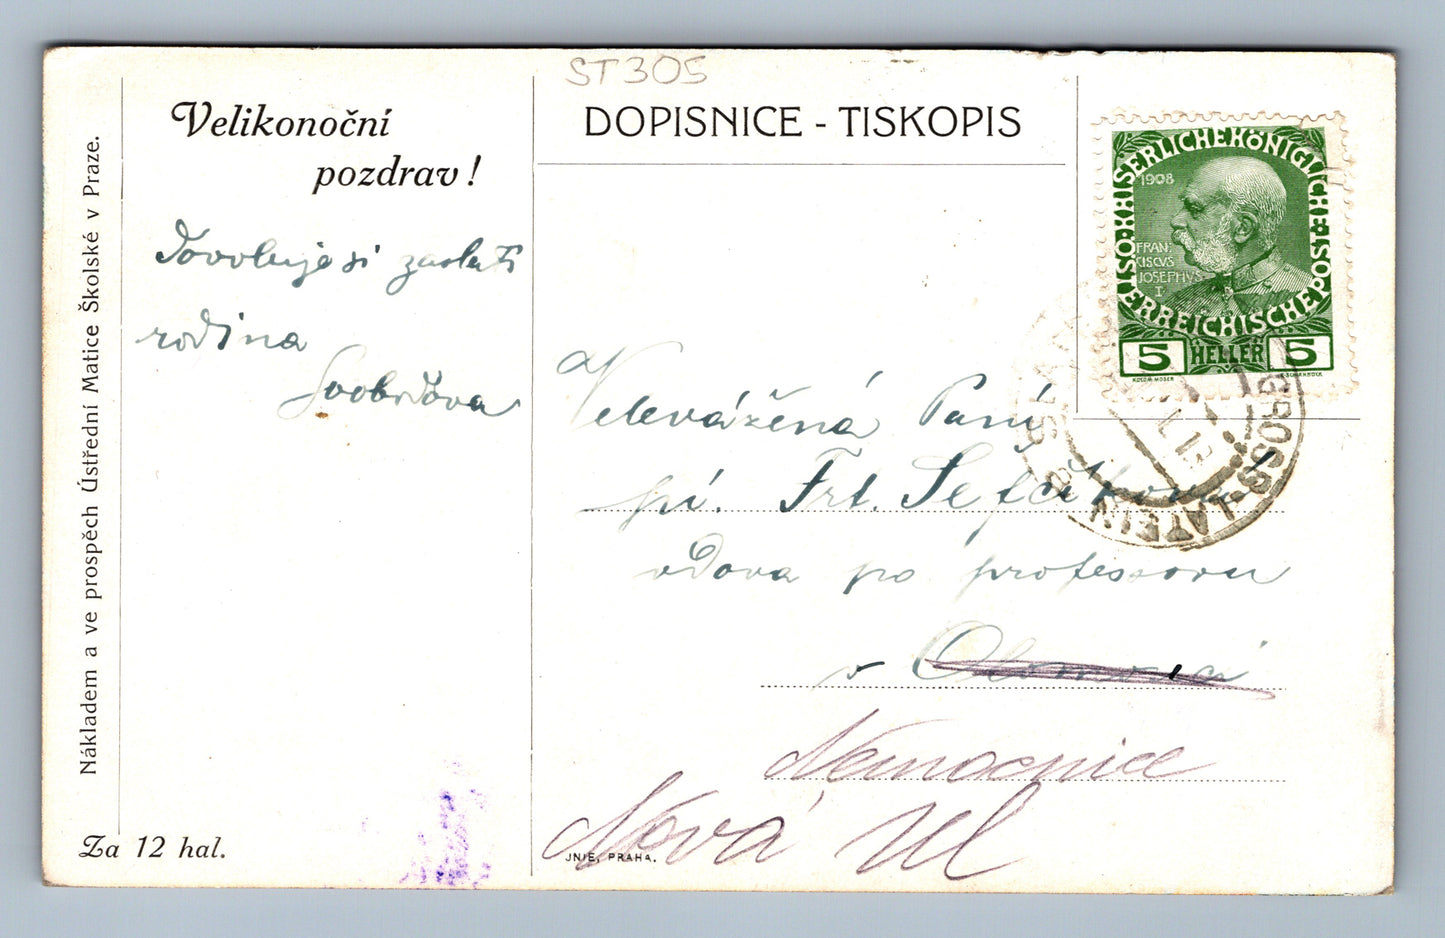 ST305
Velikonoční
pozdrav!
DOPISNICE - TISKOPIS
Dovoluje si zaslati
rodina
Svobodova
KAISERLICHE KÖNIGLICHE ÖSTERREICHISCHE POST
1908
FRAN:
CISCVS
JOSEPHVS
I.
5 HELLER 5
KOLOM MOSER
GROSS-LATEIN
Velevážená Paní
pí. Frt. Šefčíková
vdova po professoru
v Olomouci
Nemocnice
Nová Ul
JNIE, PRAHA.
Nákladem a ve prospěch Ústřední Matice Školské v Praze.
Za 12 hal.